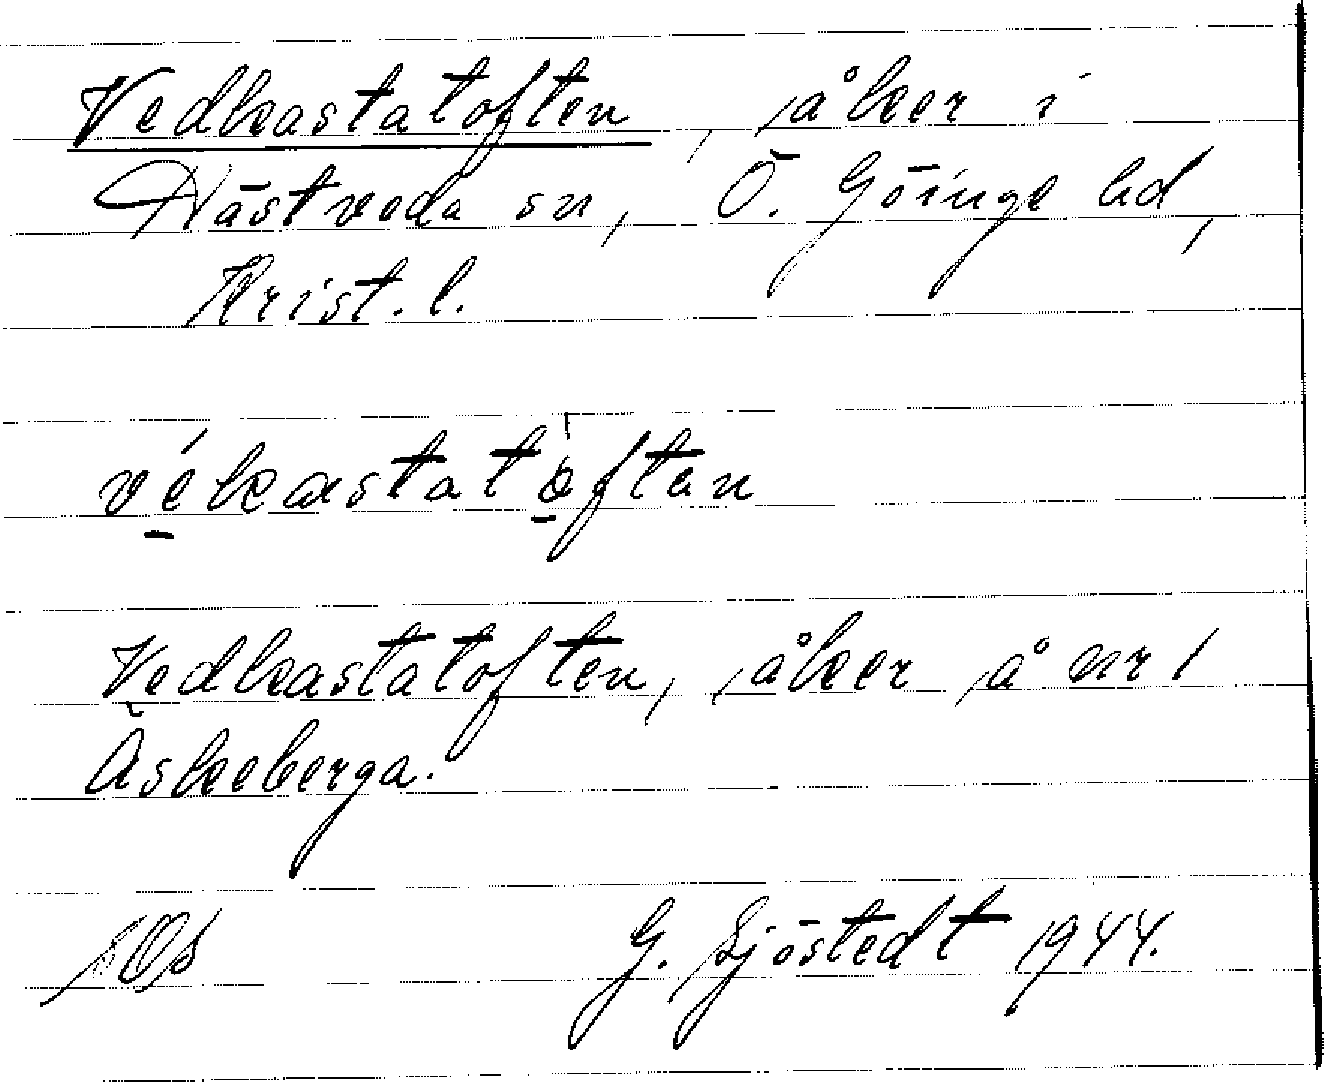 Vedkastatoften, åker i
Nästveda sn, Ö. Göinge hd,
Krist. l.
vékastatòften
Vedkastatoften, åker å nr 1
Äskeberga.
G. Sjöstedt 1944.